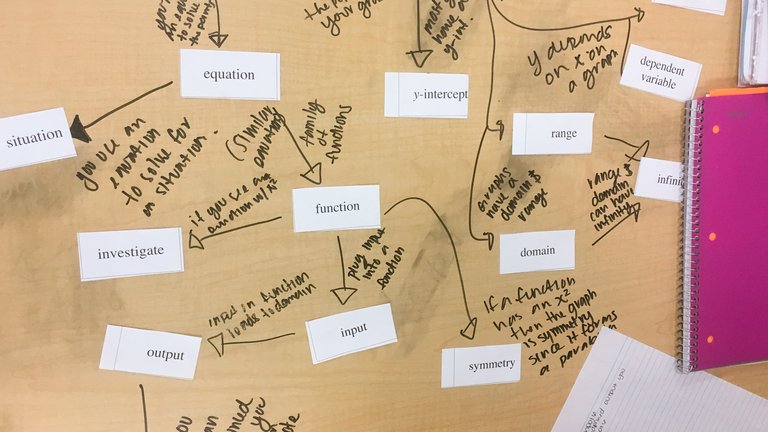 to solve
equation
situation
you use an
equation
to solve for
an situation.
(similar
equations)
family
of
functions
your gra
must
have a
y-int.
y-intercept
y depends
on x on
a graph
dependent
variable
range
infini
range &
domain
can have
infinity
graphs
have a
domain &
range
domain
function
if you see an
equation w/ x²
investigate
plug input
into a
function
input
input in function
output
if a function
has an x²
then the graph
is symmetry
since it forms
a parabola
symmetry
you